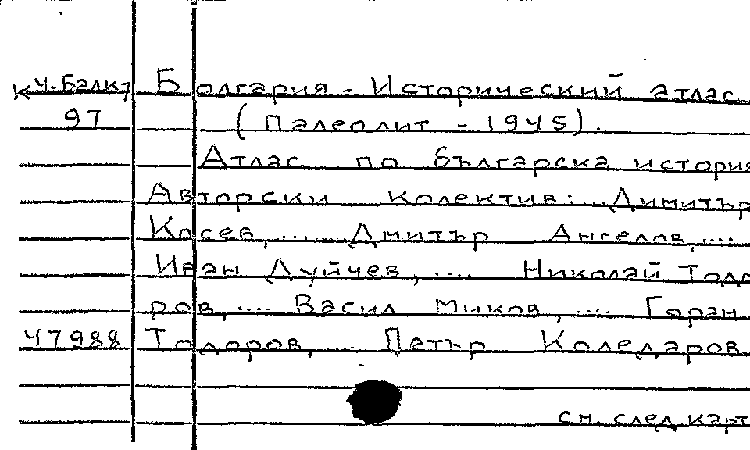 Ч.Балк, Болгария - Исторический атлас
97 (Палеолит - 1945).
Атлас по българска история
Авторски колектив: Димитър
Косев, ... Дмитър Ангелов, ...
Иван Дуйчев, ... Николай Тодо
ров, ... Васил Миков, ... Горан
47988 Тодоров, Петър Коледаров
см. след карт